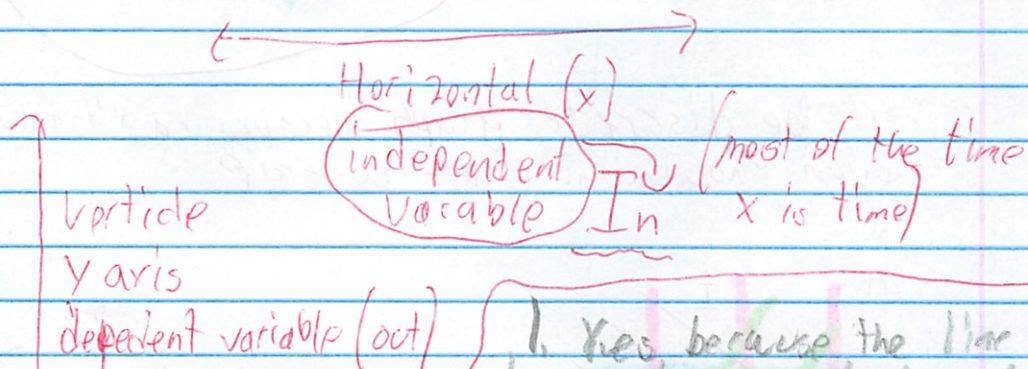 Horizontal (x)
independent
varable
In
(most of the time
x is time)
Verticle
y axis
depedent variable (out)
1. Yes, because the line